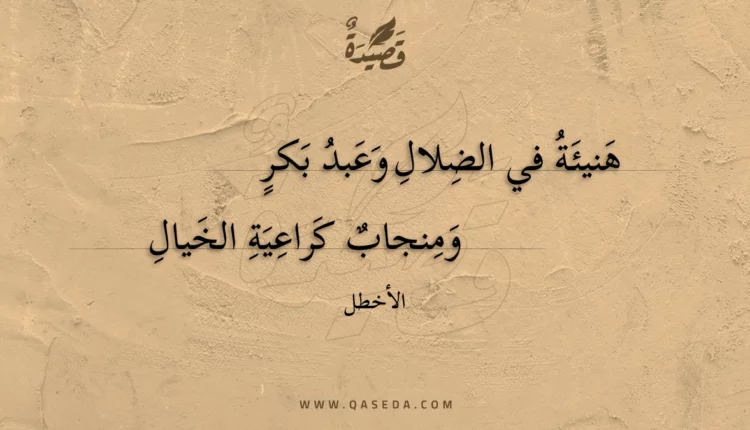 قَصِيْدَةٌ
هَنيئَةُ في الضِلالِ وَعَبدُ بَكرٍ
وَمِنجابٌ كَراعِيَةِ الخَيالِ
الأخطل
WWW.QASEDA.COM